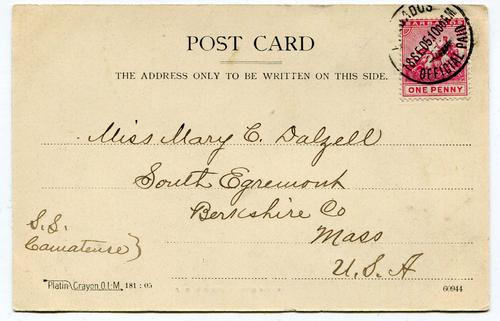 BARBADOS
18 SE 05 10
OFFICIAL PAID
BARBADOS
ONE PENNY
POST CARD
THE ADDRESS ONLY TO BE WRITTEN ON THIS SIDE.
Miss Mary C. Dalzell
South Egremont
Berkshire Co
Mass
U.S.A
S.S.
Platin Crayon O.L.M. 181 : 05
60944